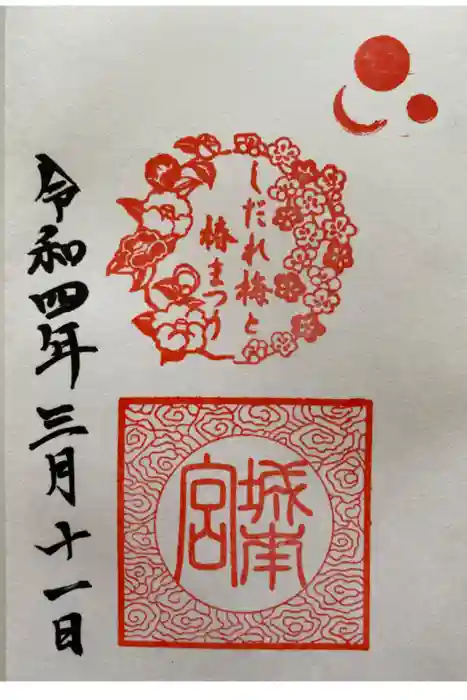 しだれ梅と
椿まつり
城南
宮
令和四年三月十一日